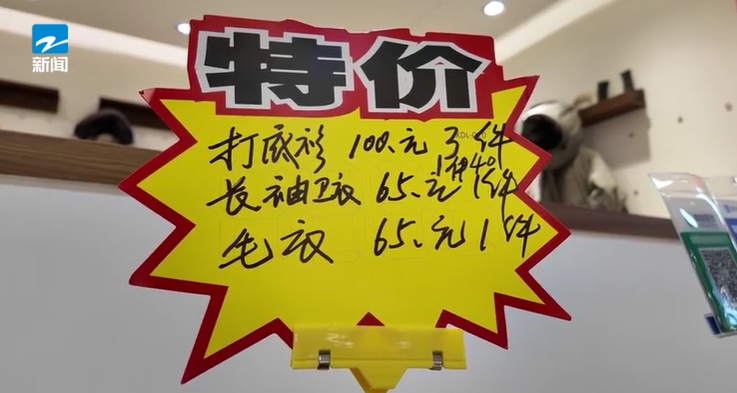 新闻
特价
打底衫 100.元 3件
1件40
长袖卫衣 65.元 1件
毛衣 65.元 1件